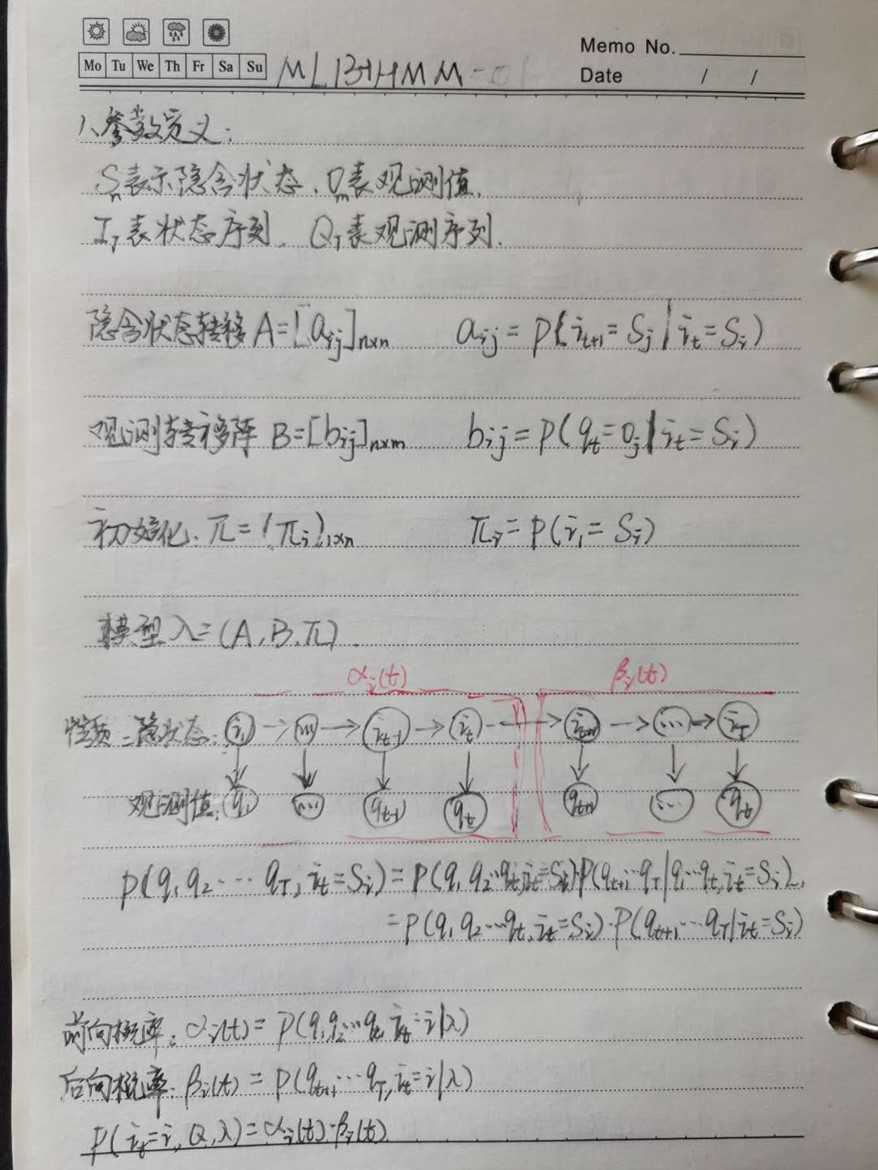 Memo No.
Mo Tu We Th Fr Sa Su
Date / /
1、参数定义:
Sₙ表示隐含状态、Oₘ表观测值.
I_T表状态序列. Q_T表观测序列.
隐含状态转移A=[a_ij]_n×n a_ij=P(i_t+1=S_j|i_t=S_i)
观测转移阵B=[b_ij]_n×m b_ij=P(q_t=O_j|i_t=S_i)
初始化.π=(π_i)_1×n π_i=P(i_1=S_i)
模型λ=(A,B,π).
α_i(t) β_i(t)
性质 隐状态: i_1 → ... → i_t-1 → i_t → i_t+1 → ... → i_T
观测值: q_1 ... q_t-1 q_t q_t+1 ... q_t
P(q_1 q_2 ... q_T, i_t=S_i)=P(q_1 q_2...q_t, i_t=S_i)P(q_t+1...q_T|q_1...q_t, i_t=S_i)
=P(q_1 q_2...q_t, i_t=S_i)·P(q_t+1...q_T|i_t=S_i)
前向概率: α_i(t)=P(q_1 q_2...q_t, i_t=i|λ)
后向概率: β_i(t)=P(q_t+1...q_T, i_t=i|λ)
P(i_t=i,Q,λ)=α_i(t)·β_i(t)